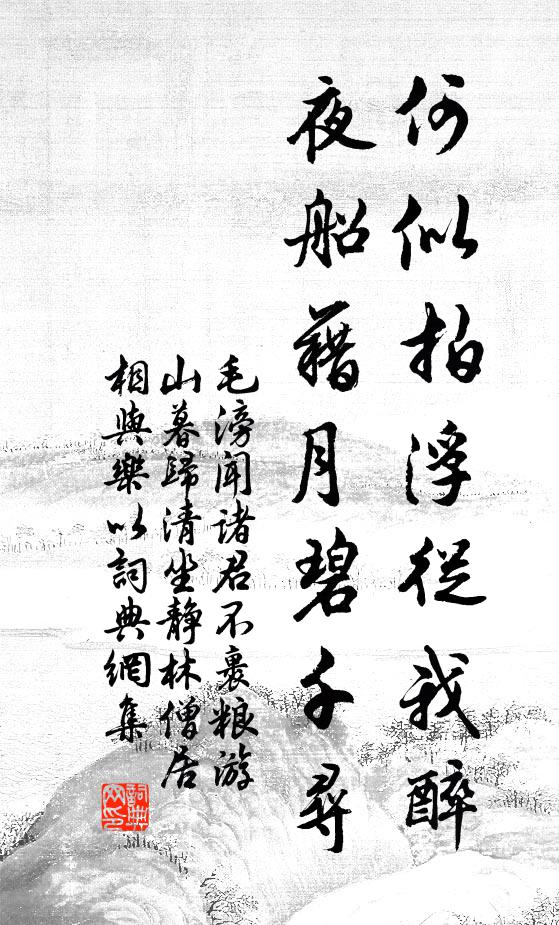 何似拍浮從我醉
夜船藉月碧千尋
毛滂聞諸君不裹粮游
山暮歸清坐静林僧居
相與樂以詞典網集